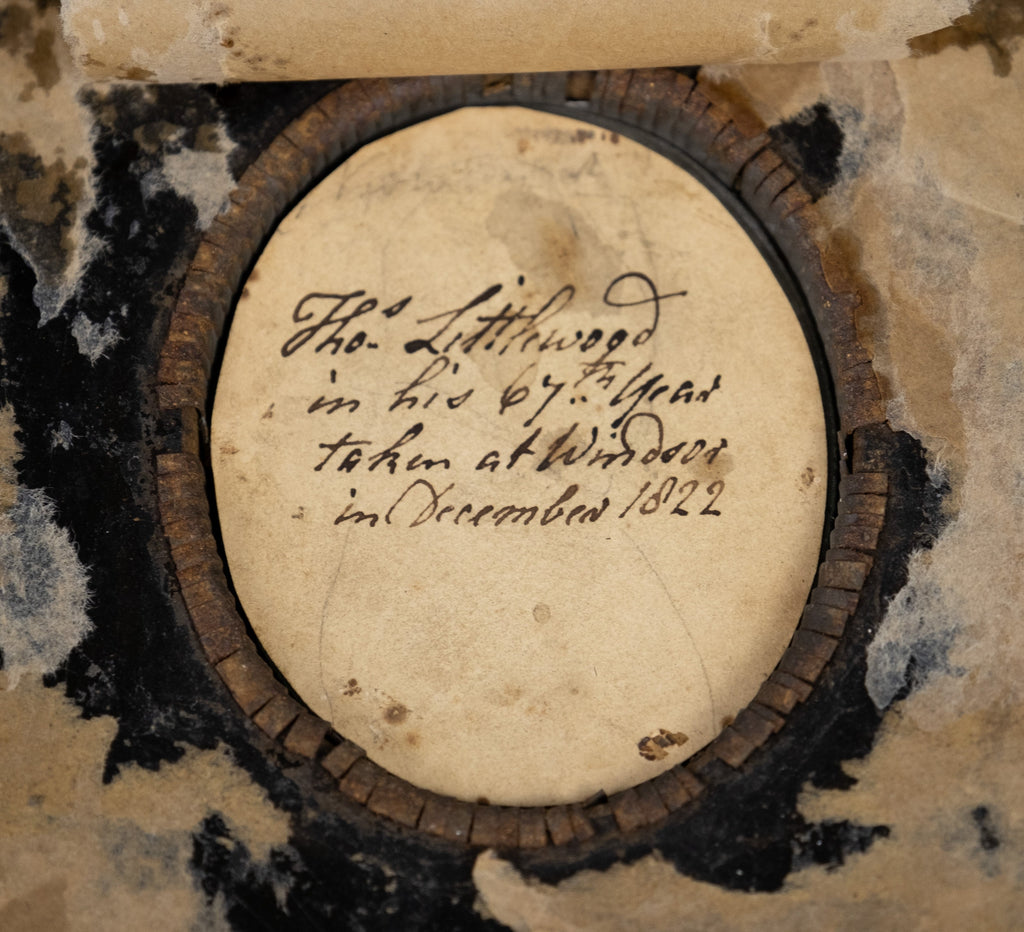 Thos. Littlewood
in his 67th Year
taken at Windsor
in December 1822